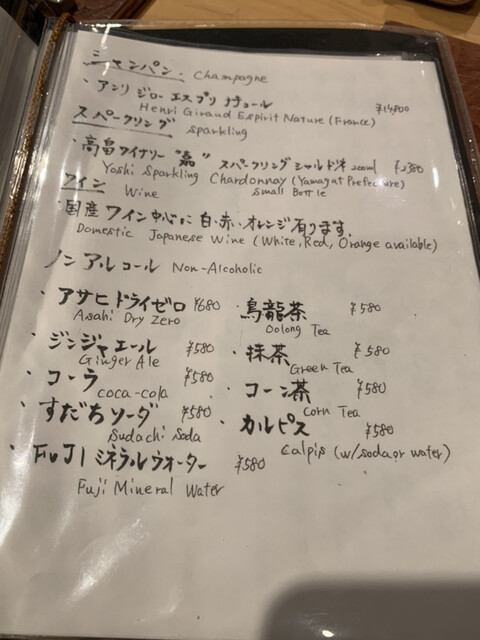 シャンパン. Champagne
・アンリ ジロー エスプリ ナチュール ¥14,800
Henri Giraud Espirit Nature (France)
スパークリング sparkling
・高畠ワイナリー "嘉" スパークリング シャルドネ 200ml ¥2380
Yoshi Sparkling Chardonnay (Yamagat Prefecture)
small Bottle
ワイン Wine
・国産ワイン中心に 白・赤・オレンジ有ります。
Domestic Japanese Wine (White, Red, Orange available)
ノンアルコール Non-Alcoholic
・アサヒドライゼロ ¥680
Asahi Dry Zero
・烏龍茶 ¥580
Oolong Tea
・ジンジャエール ¥580
Ginger Ale
・抹茶 ¥580
Green Tea
・コーラ ¥580
coca-cola
・コーン茶 ¥580
Corn Tea
・すだちソーダ ¥580
Sudachi Soda
・カルピス ¥580
Calpis (w/soda or water)
・FUJIミネラルウォーター ¥580
Fuji Mineral Water